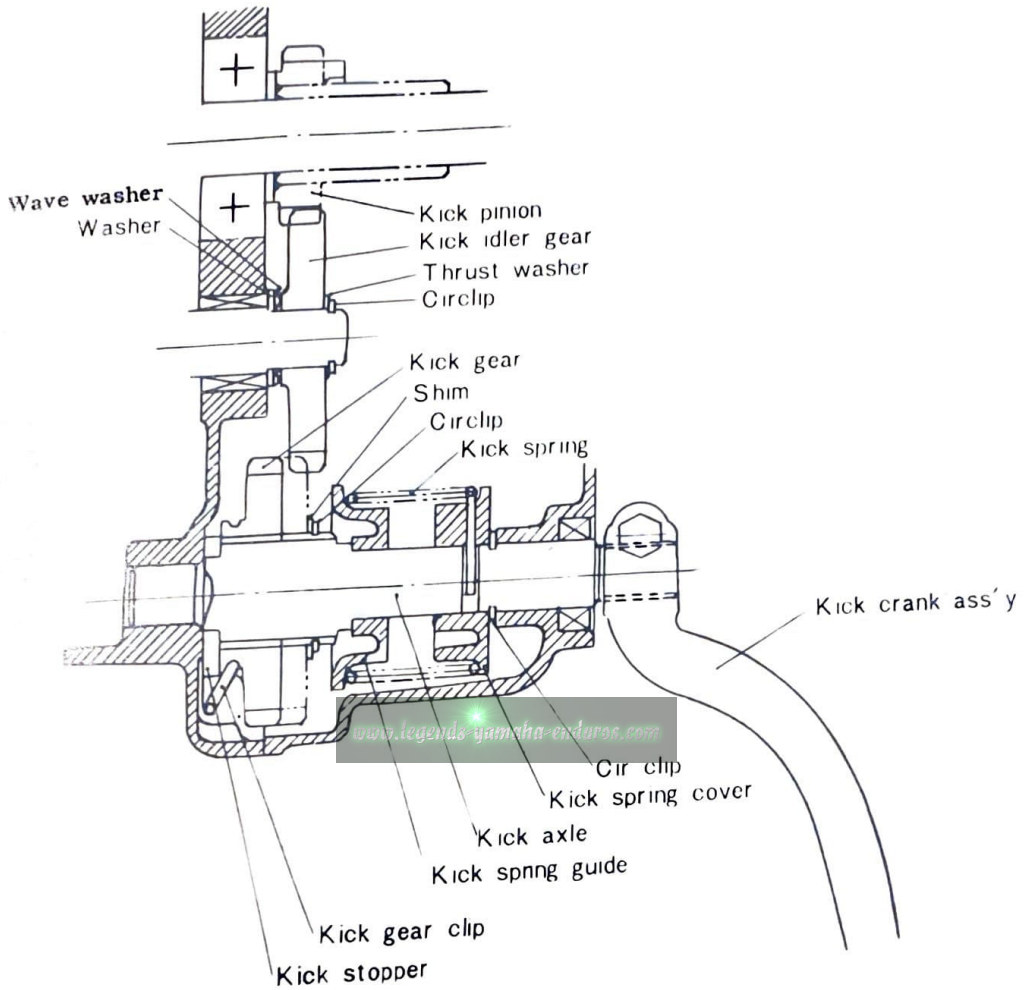 Wave washer
Washer
Kick pinion
Kick idler gear
Thrust washer
Circlip
Kick gear
Shim
Circlip
Kick spring
Kick crank ass'y
www.legends-yamaha-enduros.com
Cir clip
Kick spring cover
Kick axle
Kick spring guide
Kick gear clip
Kick stopper